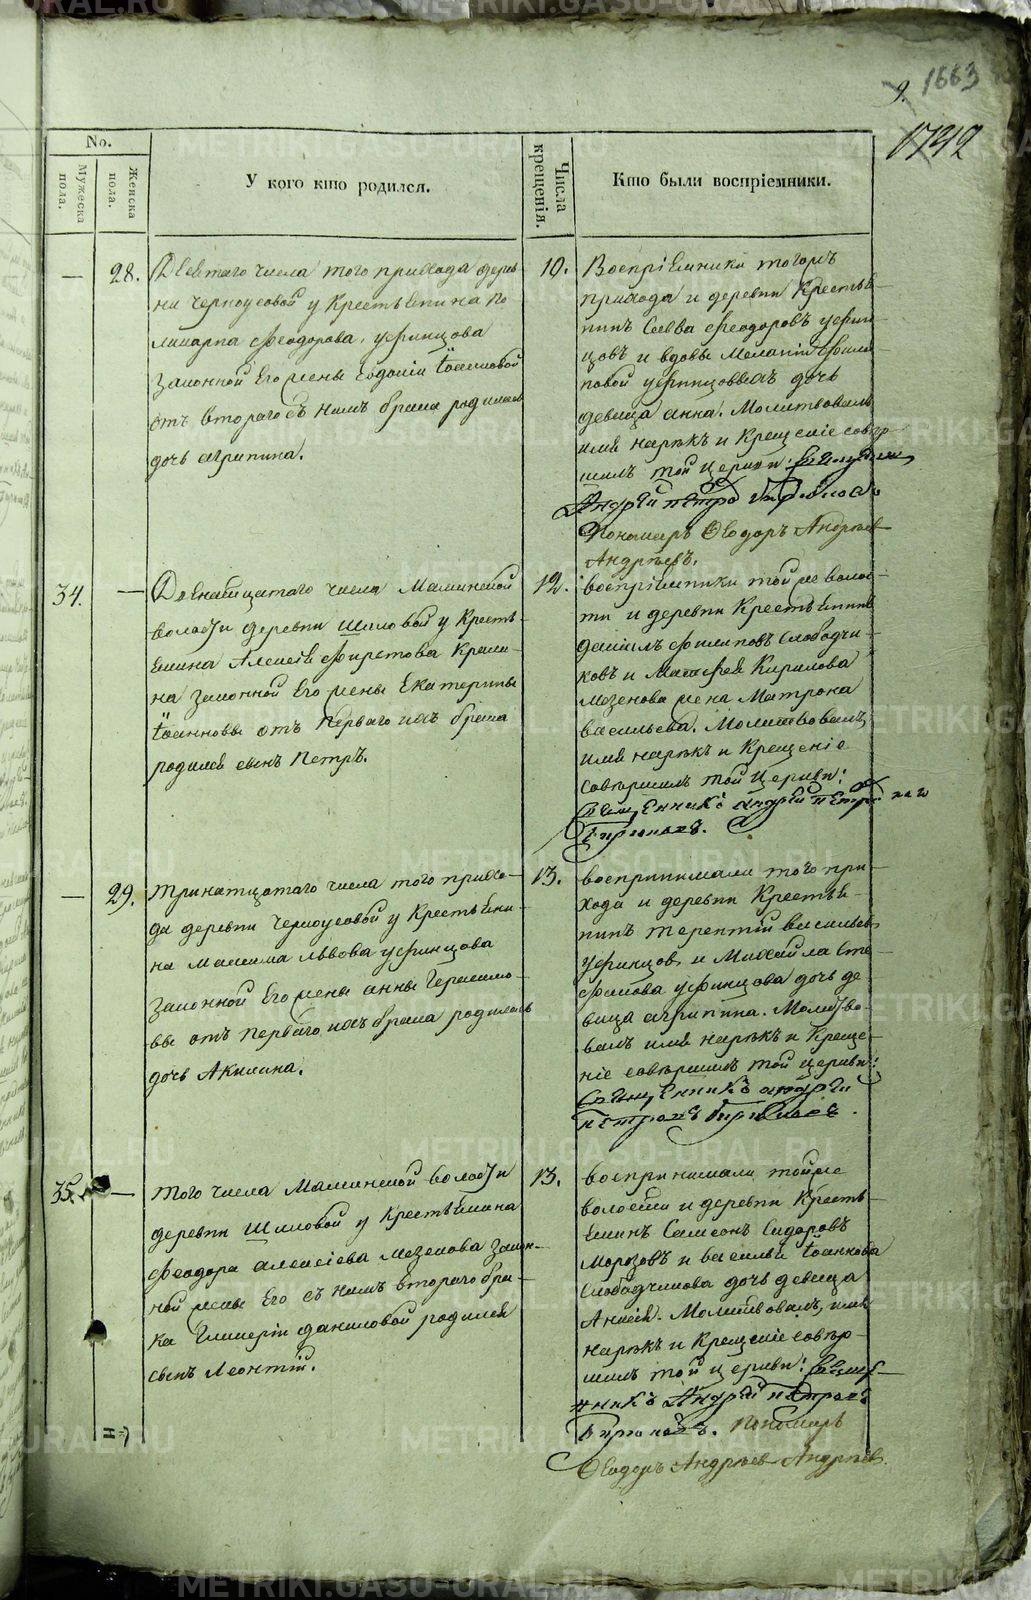 9. 1663
1742
No.
Мужеска пола.
Женска пола.
У кого кто родился.
Числа крещенія.
Кто были воспріемники.
— 28. Девятаго числа того прихода дерев
ни Черноусовой у крестьянина По
ликарпа Феодорова Уфинцова
законной его жены Іоанновой
отъ втораго съ нимъ брака родилась
дочь Агрипина.
10. Воспріемники тогожъ
прихода и деревни крестья
нинъ Савва Феодоровъ Уфин
цовъ и вдовы Меланіи Филип
повой Уфинцовыхъ дочь
девица Анна. Молитвовалъ
имя нарѣкъ и крещеніе совер
шилъ той церкви: священникъ
Андрей Петровъ
Пономарь Ѳеодоръ Андреев
Андрѣевъ.
34. — Двенатцатаго числа Маминской
волости деревни Шиловой у кресть
янина Алексея Фирстова
на законной его жены Екатерины
Іоанновы отъ перваго ихъ брака
родился сынъ Петръ.
12. воспріемники той же волос
ти и деревни крестьянинъ
Даніилъ Филиповъ Слободчи-
ковъ и Матфея Кирилова
Мезенова жена Матрона
васильева. Молитвовалъ
имя нарѣкъ и крещеніе
совершилъ той церкви:
священникъ Андрей Петровъ
— 29. Тринатцатаго числа того прихо-
да деревни Черноусовой у крестьяни-
на Максима Львова Уфинцова
законной его жены Анны Герасимо-
вы отъ перваго ихъ брака родилась
дочь Акилина.
13. воспринимали того при-
хода и деревни крестья-
нинъ Терентій васильевъ
Уфинцов и Михайла Сте
фанова Уфинцова дочь де
вица Агрипина. Молитво-
валъ имя нарѣкъ и креще-
ніе совершилъ той церкви:
Священникъ Андрей
Петровъ
35. — Того числа Маминской волости
деревни Шиловой у крестьянина
Феодора Алексіева Мезенова закон-
ной жены его съ нимъ втораго бра-
ка Гликеріи Даниловой родился
сынъ Леонтій.
13. воспринимали той же
волости и деревни кресть-
янинъ Самсонъ Сидоровъ
Морозовъ и василья Іоаннова
Слободчикова дочь девица
Анисія. Молитвовалъ, имя
нарѣкъ и крещеніе совер-
шилъ той церкви: священ-
никъ Андрей Петровъ
Пономарь
Ѳеодоръ Андреев Андрѣев.
METRIKI.GASO-URAL.RU